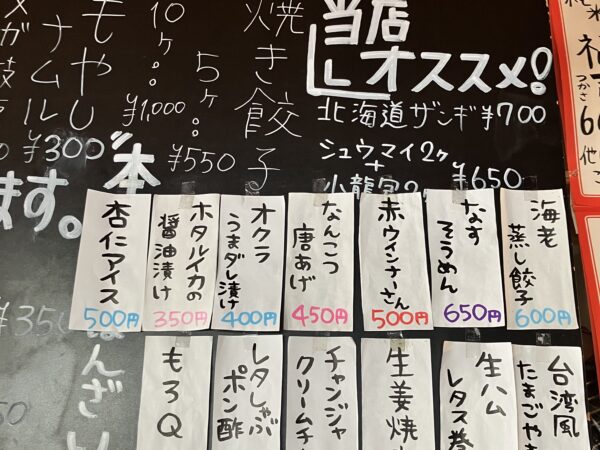 当店
オススメ!
北海道ザンギ ¥700
シュウマイ2ヶ
+
小籠包2ヶ ¥650
焼き餃子
5ヶ ¥550
10ヶ ¥1,000
もやし
ナムル
¥300
本
ます。
海老
蒸し餃子
600円
なす
そうめん
650円
赤ウインナーさん
500円
なんこつ
唐あげ
450円
オクラ
うまダレ漬け
400円
ホタルイカの
醤油漬け
350円
杏仁アイス
500円
台湾風
たまごやき
生ハム
レタス巻
生姜焼
チャンジャ
クリームチ
レタしゃぶ
ポン酢
もろQ
つかさ
他